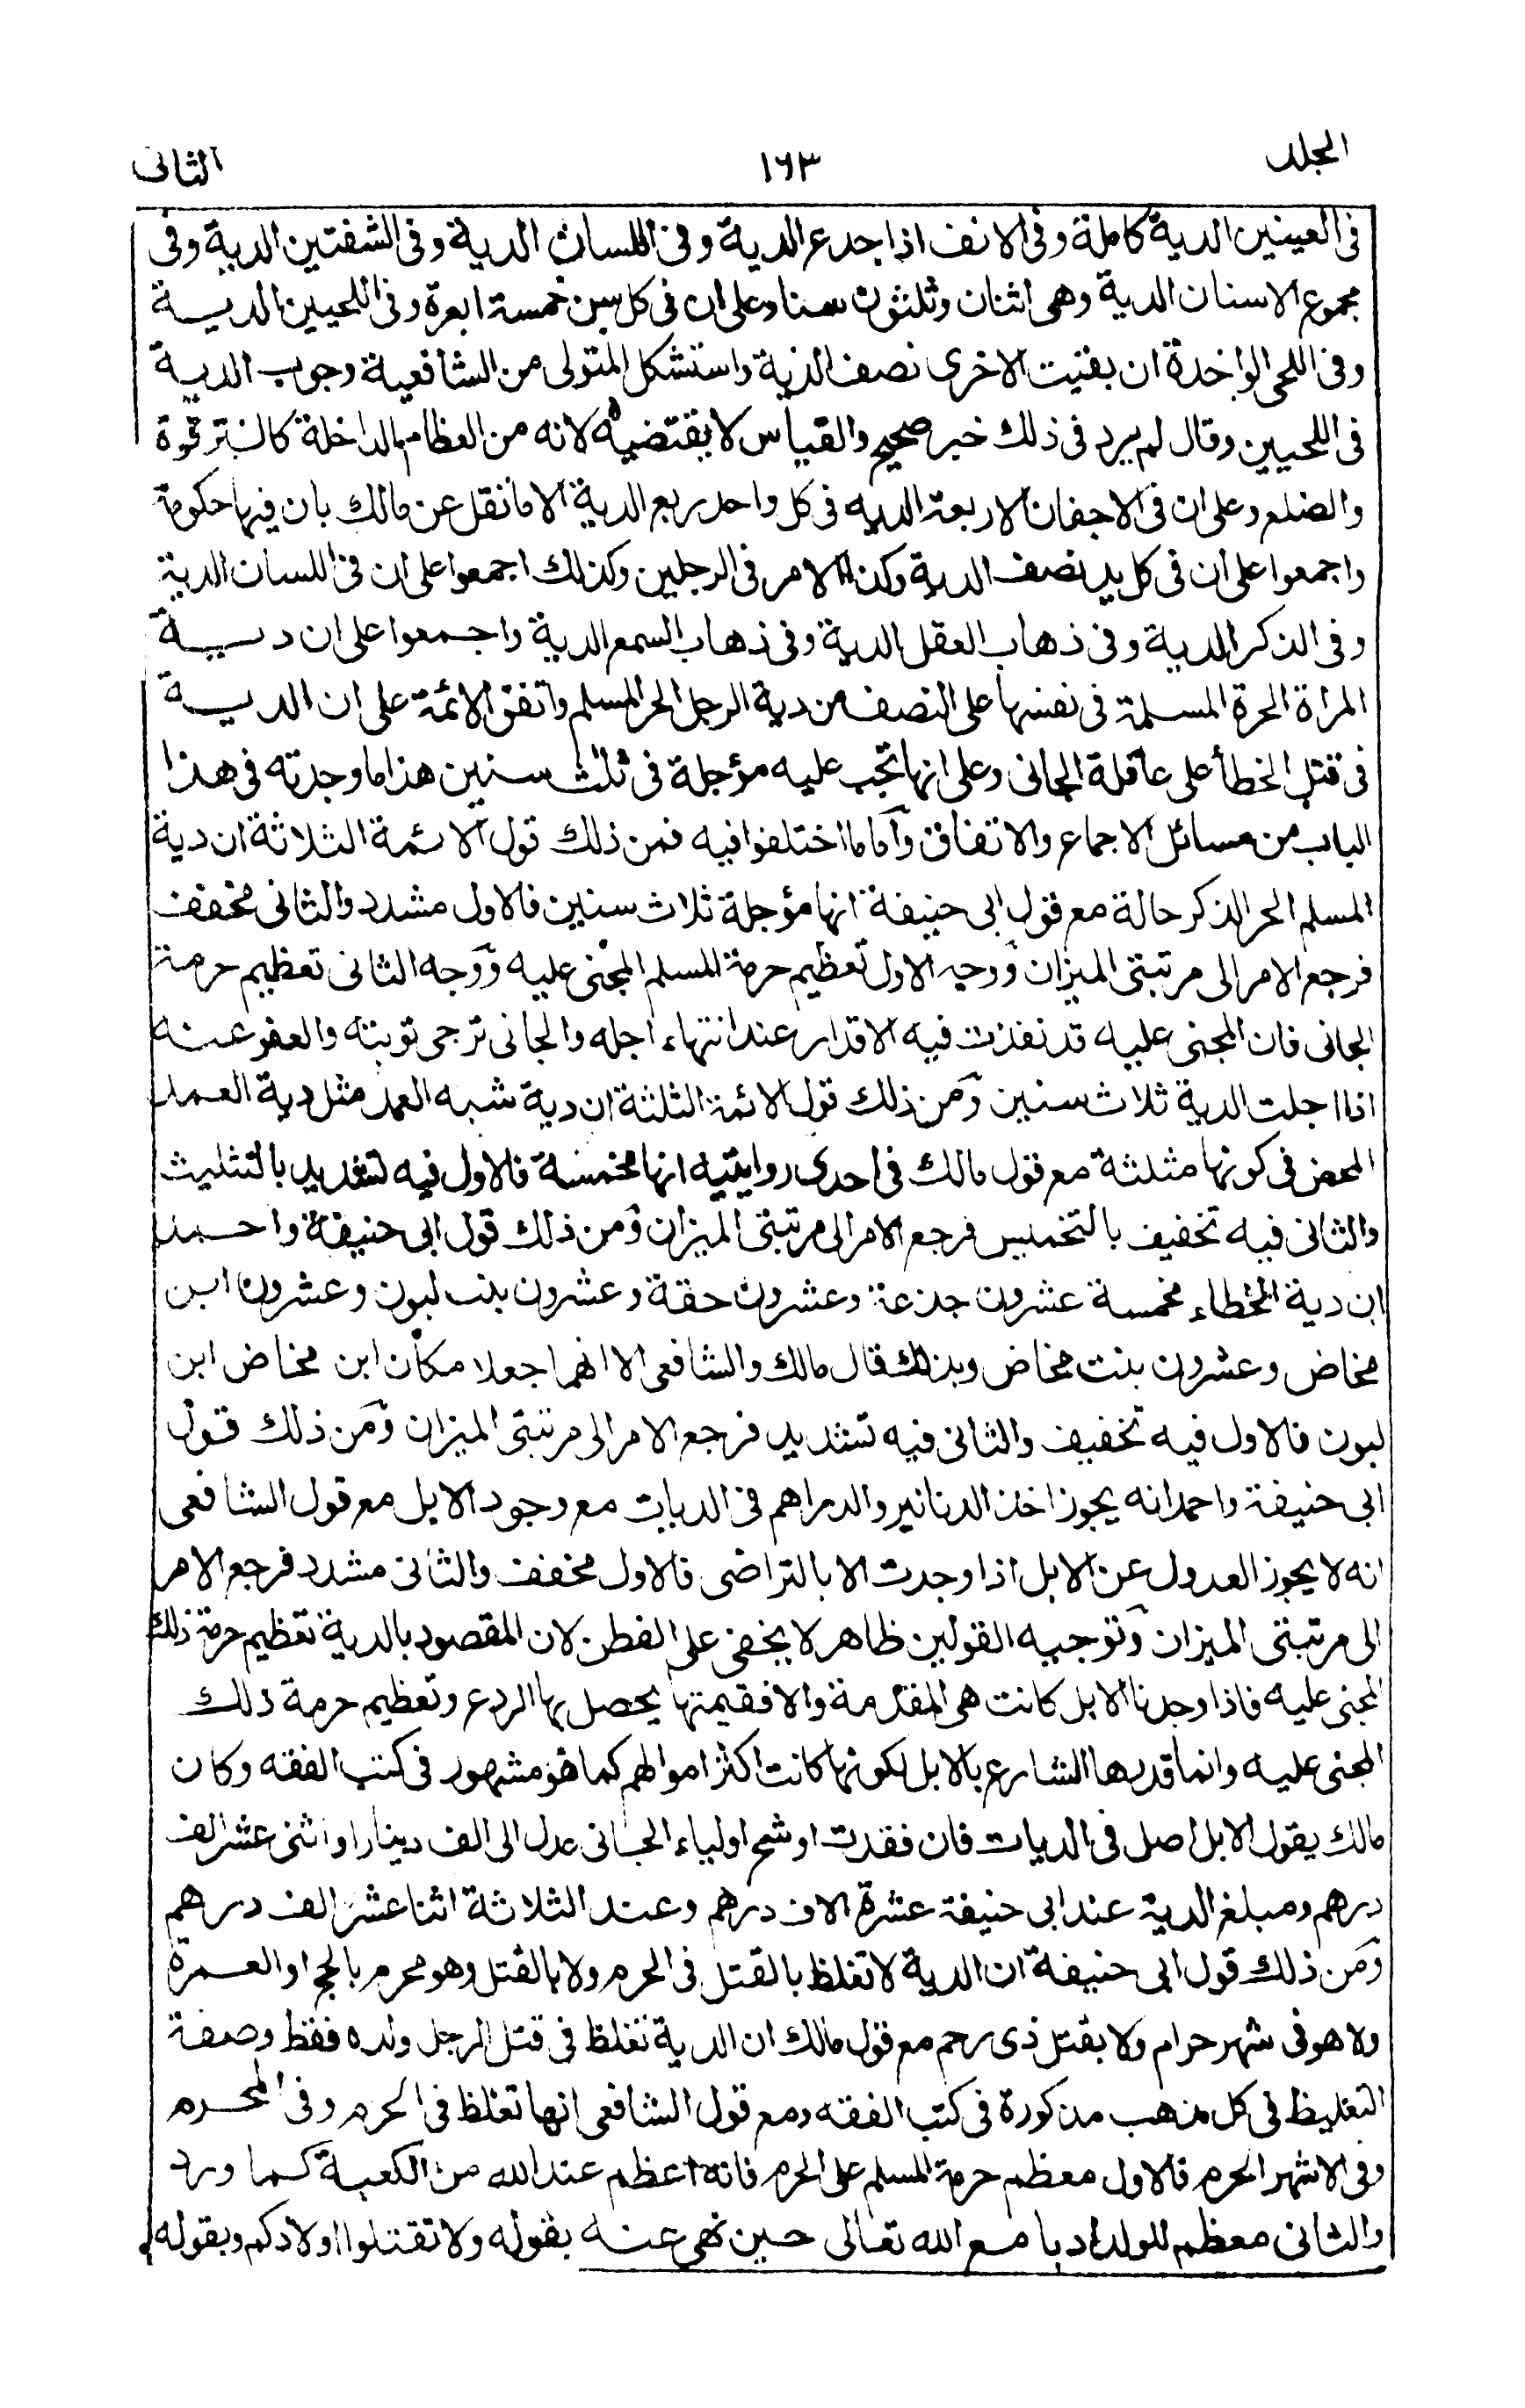 المجلد ١٦٣ الثانى
فى العينين الدية كاملة وفى الانف اذا جدع الدية وفى اللسان الدية وفى الشفتين الدية وفى
مجموع الاسنان الدية وهى اثنان وثلثون سنا وعلى ان فى كل سن خمسة ابعرة وفى اللحيين الديــة
وفى اللحى الواحدة ان بقيت الاخرى نصف الدية واستشكل المتولى من الشافعية وجوب الديــة
فى اللحيين وقال لم يرد فى ذلك خبر صحيح والقياس لا يقتضيه لانه من العظام الداخلة كالترقوة
والضلع وعلى ان فى الاجفان الاربعة الديه فى كل واحد ربع الدية الا ما نقل عن مالك بان فيها حكومة
واجمعوا على ان فى كل يد نصف الدية وكذا الامر فى الرجلين وكذلك اجمعوا على ان فى اللسان الدية
وفى الذكر الدية وفى ذهاب العقل الدية وفى ذهاب السمع الدية واجمعوا على ان ديــة
المراة الحرة المسلمة فى نفسها على النصف من دية الرجل الحر المسلم واتفق الائمة على ان الديــة
فى قتل الخطأ على عاقلة الجانى وعلى انها تجب عليه مؤجلة فى ثلث سنين هذا ما وجدته فى هذا
الباب من مسائل الاجماع والاتفاق وآما ما اختلفوا فيه فمن ذلك قول الائمة الثلاثة ان دية
المسلم الحر الذكر حالة مع قول ابى حنيفة انها مؤجلة ثلاث سنين فالاول مشدد والثانى مخفف
فرجع الامر الى مرتبتى الميزان ووجه الاول تعظيم حرمة المسلم المجنى عليه ووجه الثانى تعظيم حرمة
الجانى فان المجنى عليه قد نفذت فيه الاقدار عند انتهاء اجله والجانى ترجى توبته والعفو عنه
اذا اجلت الدية ثلاث سنين ومن ذلك قول الائمة الثلثة ان دية شبه العمد مثل دية العمد
المحض فى كونها مثلثة مع قول مالك فى احدى روايتيه انها مخمسة فالاول فيه تشديد بالتثليث
والثانى فيه تخفيف بالتخميس فرجع الامر الى مرتبتى الميزان ومن ذلك قول ابى حنيفة واحمد
ان دية الخطاء مخمسة عشرون جذعة وعشرون حقة وعشرون بنت لبون وعشرون ابن
مخاض وعشرون بنت مخاض وبذلك قال مالك والشافعى الا انهما جعلا مكان ابن مخاض ابن
لبون فالاول فيه تخفيف والثانى فيه تشديد فرجع الامر الى مرتبتى الميزان ومن ذلك قول
ابى حنيفة واحمد انه يجوز اخذ الدنانير والدراهم فى الديات مع وجود الابل مع قول الشافعى
انه لا يجوز العدول عن الابل اذا وجدت الا بالتراضى فالاول مخفف والثانى مشدد فرجع الامر
الى مرتبتى الميزان وتوجيه القولين ظاهر لا يخفى على الفطن لان المقصود بالدية تعظيم حرمة ذلك
المجنى عليه فاذا وجدنا الابل كانت هى المقدمة والا فقيمتها يحصل بها الردع وتعظيم حرمة ذلك
المجنى عليه وانما قدرها الشارع بالابل لكونها كانت اكثر اموالهم كما هو مشهور فى كتب الفقه وكان
مالك يقول الابل اصل فى الديات فان فقدت او شح اولياء الجانى عدل الى الف دينار او اثنى عشر الف
درهم ومبلغ الدية عند ابى حنيفة عشرة الاف درهم وعند الثلاثة اثنا عشر الف درهم
ومن ذلك قول ابى حنيفة ان الدية لا تغلظ بالقتل فى الحرم ولا بالقتل وهو محرم بالحج او العمرة
ولا هو فى شهر حرام ولا بقتل ذى رحم مع قول مالك ان الدية تغلظ فى قتل الرجل ولده فقط وصفة
التغليظ فى كل مذهب مذكورة فى كتب الفقه ومع قول الشافعى انها تغلظ فى الحرم وفى المحرم
وفى الاشهر الحرم فالاول معظم حرمة المسلم على الحرم فانه اعظم عند الله من الكعبة كما ورد
والثانى معظم للولد ادبا مع الله تعالى حين نهى عنه بقوله ولا تقتلوا اولادكم وبقوله